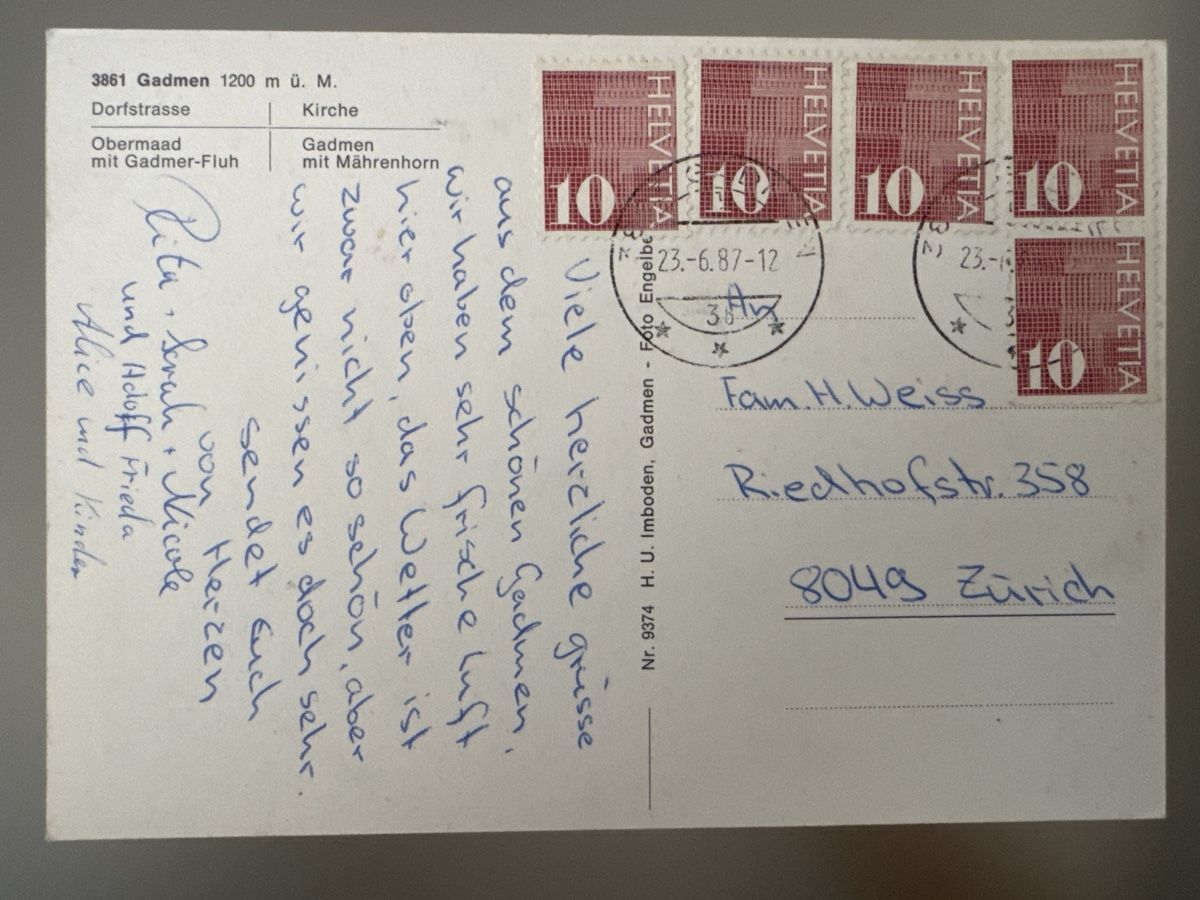 3861 Gadmen 1200 m ü. M.
Dorfstrasse
Kirche
Obermaad
mit Gadmer-Fluh
Gadmen
mit Mährenhorn
Viele herzliche grüsse
aus dem schönen Gadmen,
wir haben sehr frische Luft
hier oben, das Wetter ist
zwar nicht so schön, aber
wir genissen es doch sehr.
sendet Euch
von Herzen
Rita, Sarah + Nicole
und Adolf Frieda
Alice und Kinder
Nr. 9374 H. U. Imboden, Gadmen - Foto Engelbe
HELVETIA
10
HELVETIA
10
HELVETIA
10
HELVETIA
10
HELVETIA
10
23.-6.87-12
23.-
An
Fam. H. Weiss
Riedhofstr. 358
8049 Zürich